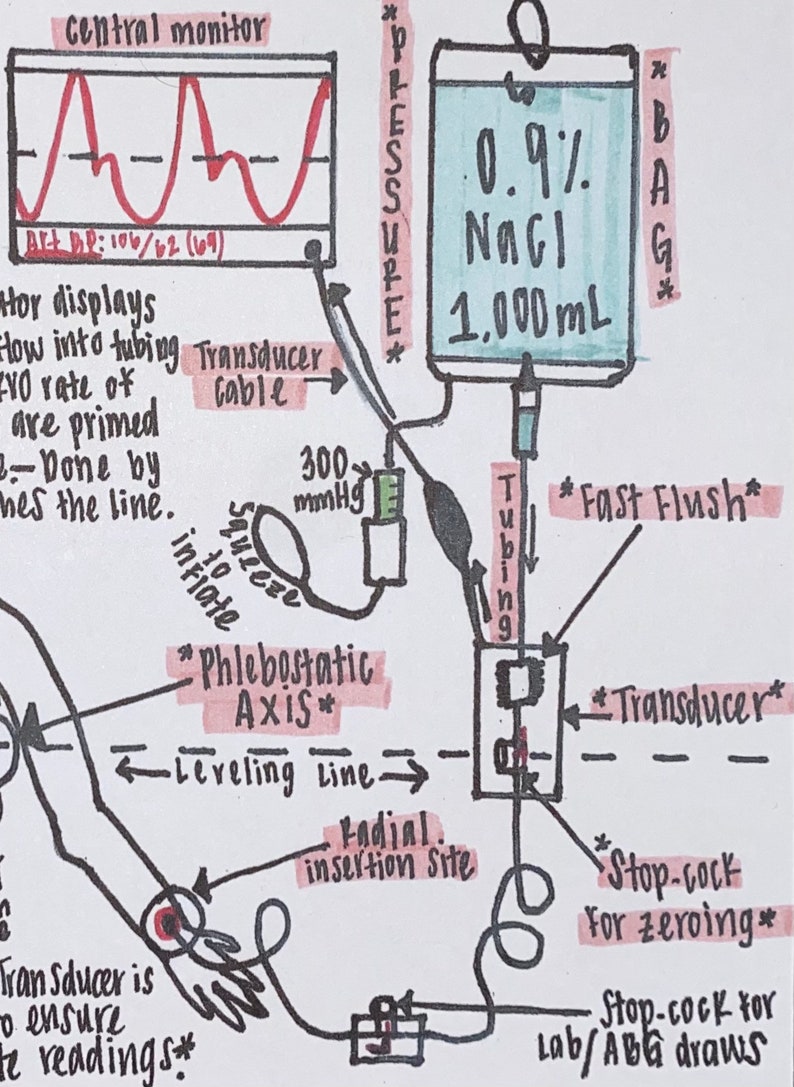 central monitor
Art BP: 106/62 (69)
*PRESSURE*
0.9%
NaCl
1,000mL
*BAG*
displays
flow into tubing
rate of
are primed
Done by
the line.
Transducer
cable
300
mmHg
Squeeze
to
inflate
Tubing
*Fast Flush*
*Transducer*
*Phlebostatic
Axis*
Leveling Line
Radial
insertion site
*Stop-cock
for zeroing*
Transducer is
ensure
readings*
Stop-cock for
Lab/ABG draws